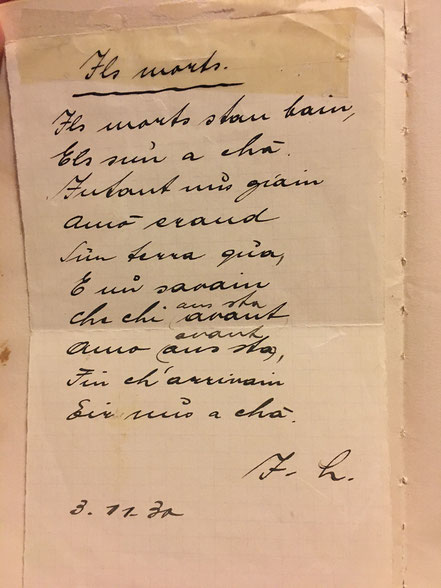 Ils morts.
Ils morts stan bain,
Els sun a chà.
Intant nus giain
Amo errand
Sün terra qua,
E nu savain
che chi (avant
ans sta
amo (ans sta),
avant
Fin ch'arrivain
Eir nus a chà.
3.11.30